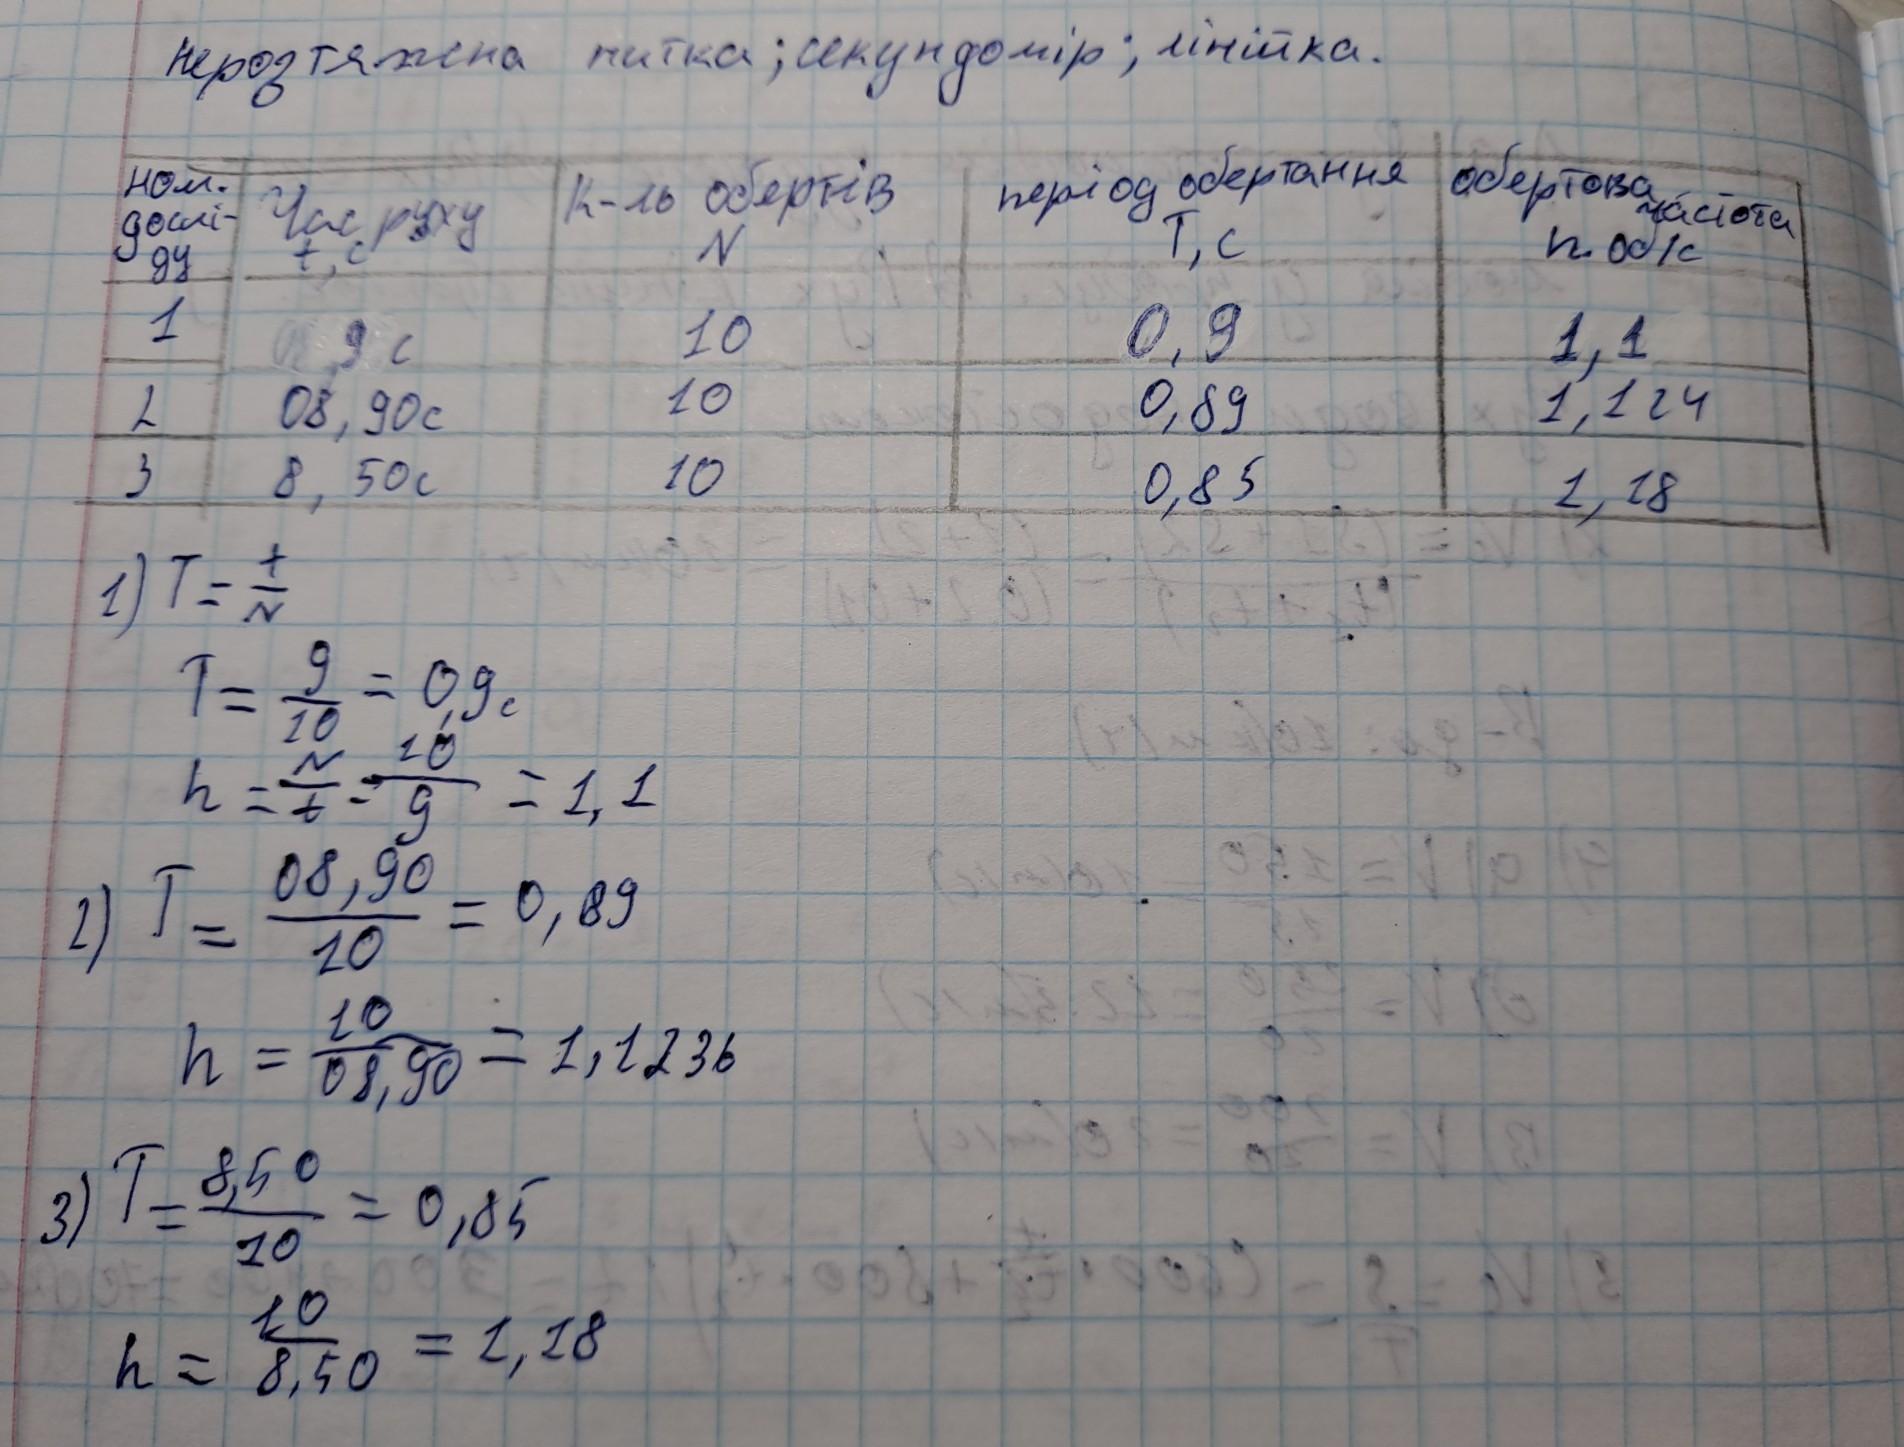 Нерозтяжена нитка; секундомір; лінійка.
ном. дослі-ду | Час руху t, с | К-ль обертів N | період обертання T, с | обертова частота n. об/с
1 | 9 с | 10 | 0,9 | 1,1
2 | 08,90с | 10 | 0,89 | 1,124
3 | 8,50с | 10 | 0,85 | 1,18
1) T = t/N
T = 9/10 = 0,9с
n = N/t = 10/9 = 1,1
2) T = 08,90/10 = 0,89
n = 10/08,90 = 1,1236
3) T = 8,50/10 = 0,85
n = 10/8,50 = 1,18